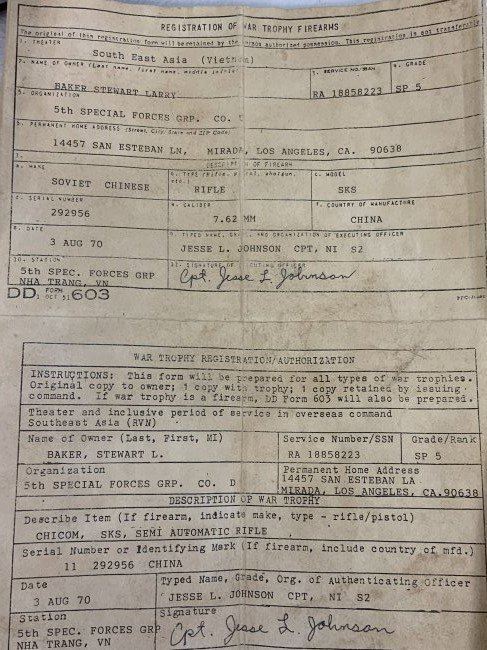 REGISTRATION OF WAR TROPHY FIREARMS
The original of this registration form will be retained by the person authorized possession. This registration is not transferable
1. THEATER
South East Asia (Vietnam)
2. NAME OF OWNER (Last name, first name, middle initial)
BAKER STEWART LARRY
3. SERVICE NO./SSAN
RA 18858223
4. GRADE
SP 5
5. ORGANIZATION
5th SPECIAL FORCES GRP. CO.
6. PERMANENT HOME ADDRESS (Street, City, State and ZIP Code)
14457 SAN ESTEBAN LN, MIRADA, LOS ANGELES, CA. 90638
7. DESCRIPTION OF FIREARM
a. MAKE
SOVIET CHINESE
RIFLE
c. MODEL
SKS
d. SERIAL NUMBER
292956
e. CALIBER
7.62 MM
f. COUNTRY OF MANUFACTURE
CHINA
8. DATE
3 AUG 70
9. TYPED NAME, GRADE, AND ORGANIZATION OF EXECUTING OFFICER
JESSE L. JOHNSON CPT, NI S2
10. STATION
5th SPEC. FORCES GRP
NHA TRANG, VN
SIGNATURE OF EXECUTING OFFICER
Cpt. Jesse L Johnson
DD FORM 1 OCT 51 603
WAR TROPHY REGISTRATION/AUTHORIZATION
INSTRUCTIONS: This form will be prepared for all types of war trophies.
Original copy to owner; 1 copy with trophy; 1 copy retained by issuing
command. If war trophy is a firearm, DD Form 603 will also be prepared.
Theater and inclusive period of service in overseas command
Southeast Asia (RVN)
Name of Owner (Last, First, MI)
BAKER, STEWART L.
Service Number/SSN
RA 18858223
Grade/Rank
SP 5
Organization
5th SPECIAL FORCES GRP. CO. D
Permanent Home Address
14457 SAN ESTEBAN LA
MIRADA, LOS ANGELES, CA.90638
DESCRIPTION OF WAR TROPHY
Describe Item (If firearm, indicate make, type - rifle/pistol)
CHICOM, SKS, SEMI AUTOMATIC RIFLE
Serial Number or Identifying Mark (If firearm, include country of mfd.)
11 292956 CHINA
Date
3 AUG 70
Typed Name, Grade, Org. of Authenticating Officer
JESSE L. JOHNSON CPT, NI S2
Station
5th SPEC. FORCES GRP
NHA TRANG, VN
Signature
Cpt. Jesse L. Johnson